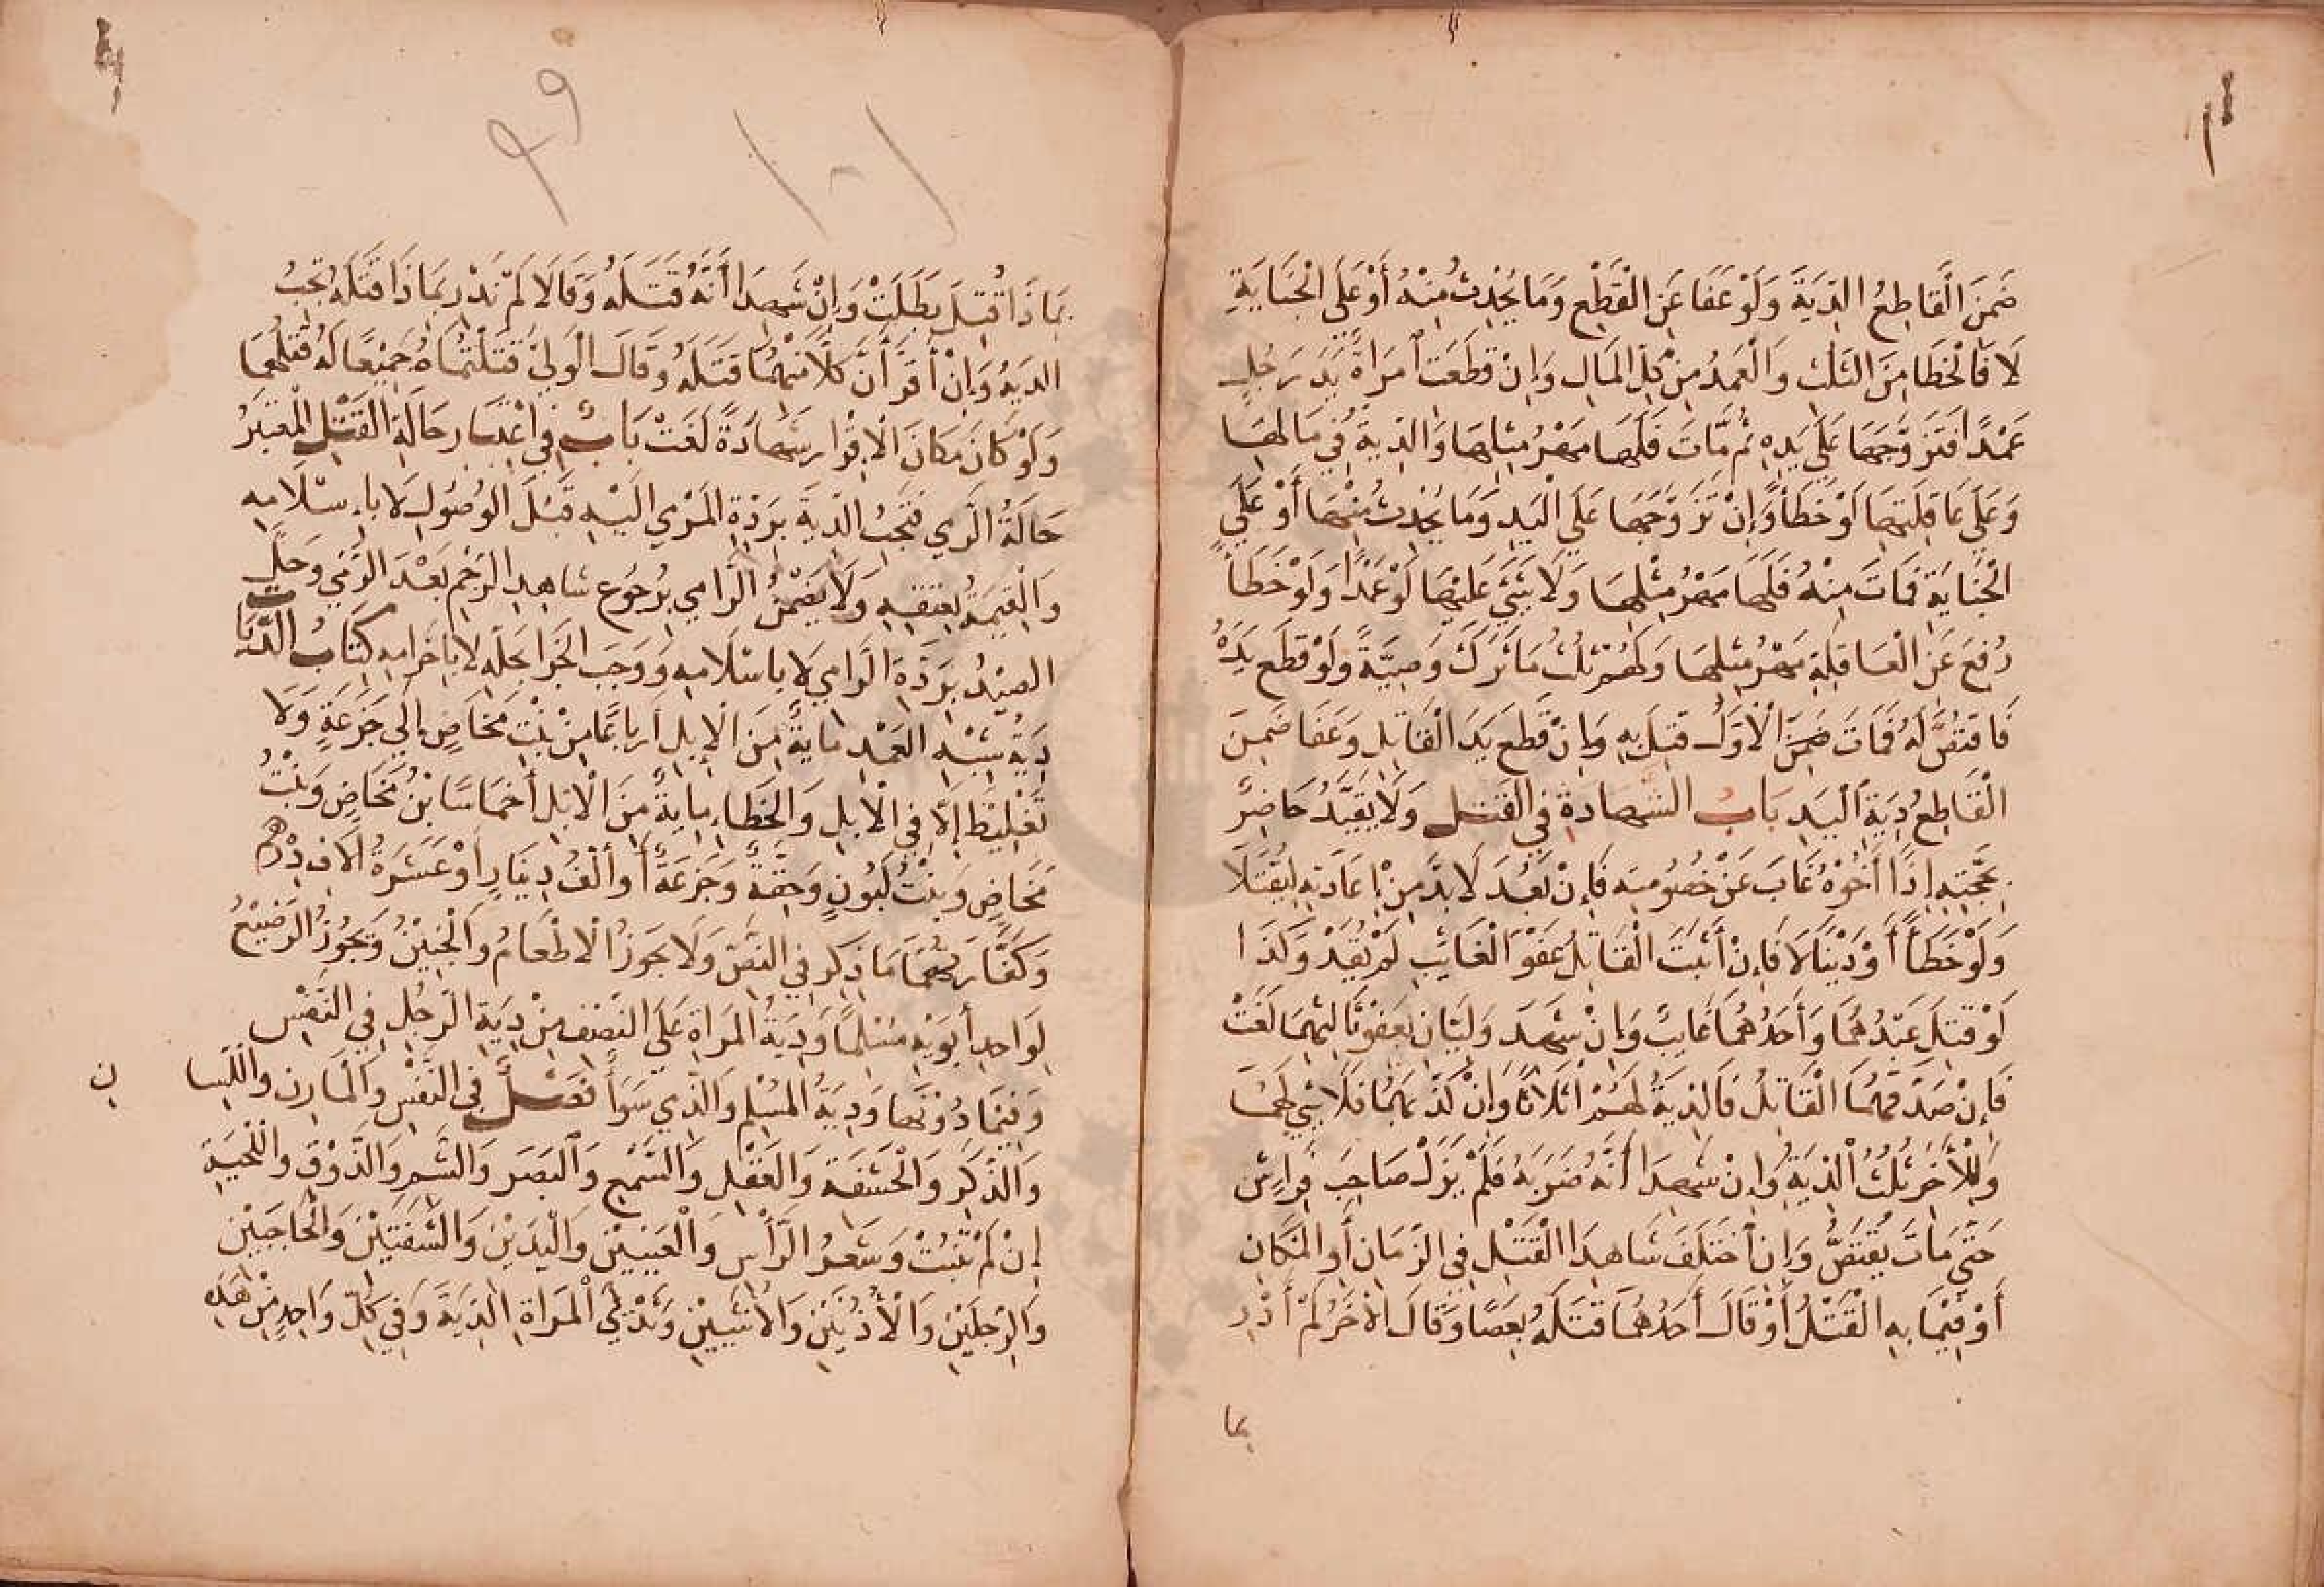 ضَمِنَ الْقَاطِعُ الدِّيَةَ وَلَوْ عَفَا عَنِ الْقَطْعِ وَمَا يَحْدُثُ مِنْهُ أَوْ عَلَى الْجِنَايَةِ
لَا فَالْخَطَا مِنَ الثُّلُثِ وَالْعَمْدُ مِنْ كُلِّ الْمَالِ وَإِنْ قَطَعَتْ امْرَأَةٌ يَدَ رَجُلٍ
عَمْدًا فَتَزَوَّجَهَا عَلَى يَدِهِ ثُمَّ مَاتَ فَلَهَا مَهْرُ مِثْلِهَا وَالدِّيَةُ فِي مَالِهَا
وَعَلَى عَاقِلَتِهَا لَوْ خَطَأً وَإِنْ تَزَوَّجَهَا عَلَى الْيَدِ وَمَا يَحْدُثُ مِنْهَا أَوْ عَلَى
الْجِنَايَةِ فَمَاتَ مِنْهُ فَلَهَا مَهْرُ مِثْلِهَا وَلَا شَيْءَ عَلَيْهَا لَوْ عَمْدًا وَلَوْ خَطَأً
رُفِعَ عَنِ الْعَاقِلَةِ مَهْرُ مِثْلِهَا وَلَهُمْ ثُلُثُ مَا تَرَكَ وَصِيَّةً وَلَوْ قَطَعَ يَدَهُ
فَاقْتُصَّ لَهُ فَمَاتَ ضَمِنَ الْأَوَّلُ قُتِلَ بِهِ وَإِنْ قَطَعَ يَدَ الْقَاتِلِ وَعَفَا ضَمِنَ
الْقَاطِعُ دِيَةَ الْيَدِ بَابُ الشَّهَادَةِ فِي الْقَتْلِ وَلَا يُقَيَّدُ حَاضِرٌ
بِحُجَّتِهِ إِذَا أَخُوهُ غَابَ عَنْ خُصُومَتِهِ فَإِنْ يَعُدْ لَا بُدَّ مِنْ إِعَادَتِهِ لِيُقْتَلَا
وَلَوْ خَطَأً أَوْ دَيْنًا لَا فَإِنْ أَثْبَتَ الْقَاتِلُ عَفْوَ الْغَائِبِ لَمْ يُقَدْ وَكَذَا
لَوْ قُتِلَ عَبْدُهُمَا وَأَحَدُهُمَا غَايِبٌ وَإِنْ شَهِدَ وَلِيَّانِ بِعَفْوِ ثَالِثِهِمَا لَغَتْ
فَإِنْ صَدَّقَهُمَا الْقَاتِلُ فَالدِّيَةُ لَهُمْ أَثْلَاثًا وَإِنْ كَذَّبَهُمَا فَلَا شَيْءَ لَهُمَا
وَلِلْآخَرِ ثُلُثُ الدِّيَةِ وَإِنْ شَهِدَا أَنَّهُ ضَرَبَهُ فَلَمْ يَزَلْ صَاحِبَ فِرَاشٍ
حَتَّى مَاتَ يُقْتَصُّ وَإِنِ اخْتَلَفَ شَاهِدَا الْقَتْلِ فِي الزَّمَانِ أَوِ الْمَكَانِ
أَوْ فِيمَا بِهِ الْقَتْلُ أَوْ قَالَ أَحَدُهُمَا قَتَلَهُ بِعَصًا وَقَالَ الْآخَرُ لَمْ أَدْرِ
بما
٩٩
١٠١
بِمَاذَا قُتِلَ بَطَلَتْ وَإِنْ شَهِدَا أَنَّهُ قَتَلَهُ وَقَالَا لَمْ نَدْرِ بِمَاذَا قَتَلَهُ تَجِبُ
الدِّيَةُ وَإِنْ أَقَرَّ أَنَّ كُلًّا مِنْهُمَا قَتَلَهُ وَقَالَ الْوَلِيُّ قَتَلْتُمَاهُ جَمِيعًا لَهُ قَتْلُهُمَا
وَلَوْ كَانَ مَكَانَ الْإِقْرَارِ شَهَادَةٌ لَغَتْ بَابٌ فِي اعْتِبَارِ حَالَةِ الْقَتْلِ الْمُعْتَبَرُ
حَالَةُ الرَّمْيِ فَتَجِبُ الدِّيَةُ بِرَدَّةِ الْمَرْمِيِّ إِلَيْهِ قَبْلَ الْوُصُولِ لَا بِإِسْلَامِهِ
وَالْقِيمَةُ بِعِتْقِهِ وَلَا يَضْمَنُ الرَّامِي بِرُجُوعِ شَاهِدِ الرَّجْمِ بَعْدَ الرَّمْيِ وَحَلَّ
الصَّيْدُ بِرَدَّةِ الرَّامِي لَا بِإِسْلَامِهِ وَوَجَبَ الْجَزَا بِحِلِّهِ لَا بِإِحْرَامِهِ كِتَابُ الدِّيَاتِ
دِيَةُ شِبْهِ الْعَمْدِ مِايَةٌ مِنَ الْإِبِلِ أَرْبَاعًا مِنْ بِنْتِ مَخَاضٍ إِلَى جَزَعَةٍ وَلَا
تَغْلِيظَ إِلَّا فِي الْإِبِلِ وَالْخَطَاءِ مِايَةٌ مِنَ الْإِبِلِ أَخْمَاسًا بْنُ مَخَاضٍ وَبِنْتُ
مَخَاضٍ وَبِنْتُ لَبُونٍ وَحِقَّةٌ وَجَزَعَةٌ أَوْ أَلْفُ دِينَارٍ أَوْ عَشَرَةُ آلَافِ دِرْهَمٍ
وَكَفَّارَتُهُمَا مَا ذُكِرَ فِي النَّصِّ وَلَا يَجُوزُ الْإِطْعَامُ وَالْجَنِينُ وَيَجُوزُ الرَّضِيعُ
لَوْ أَحَدُ أَبَوَيْهِ مُسْلِمًا وَدِيَةُ الْمَرْأَةِ عَلَى النِّصْفِ مِنْ دِيَةِ الرَّجُلِ فِي النَّفْسِ
وَفِيمَا دُونَهَا وَدِيَةُ الْمُسْلِمِ وَالذِّمِّي سَوَاءٌ فَصْلٌ فِي النَّفْسِ وَالْمَارِنِ وَاللِّسَا
ن
وَالذَّكَرِ وَالْحَشَفَةِ وَالْعَقْلِ وَالسَّمْعِ وَالْبَصَرِ وَالشَّمِّ وَالذَّوْقِ وَاللِّحْيَةِ
إِنْ لَمْ تَنْبُتْ وَشَعْرِ الرَّأْسِ وَالْعَيْنَيْنِ وَالْيَدَيْنِ وَالشَّفَتَيْنِ وَالْحَاجِبَيْنِ
وَالرِّجْلَيْنِ وَالْأُذُنَيْنِ وَالْأُنْثَيَيْنِ وَثَدْيَيِ الْمَرْأَةِ الدِّيَةُ وَفِي كُلِّ وَاحِدٍ مِنْ هَذِهِ